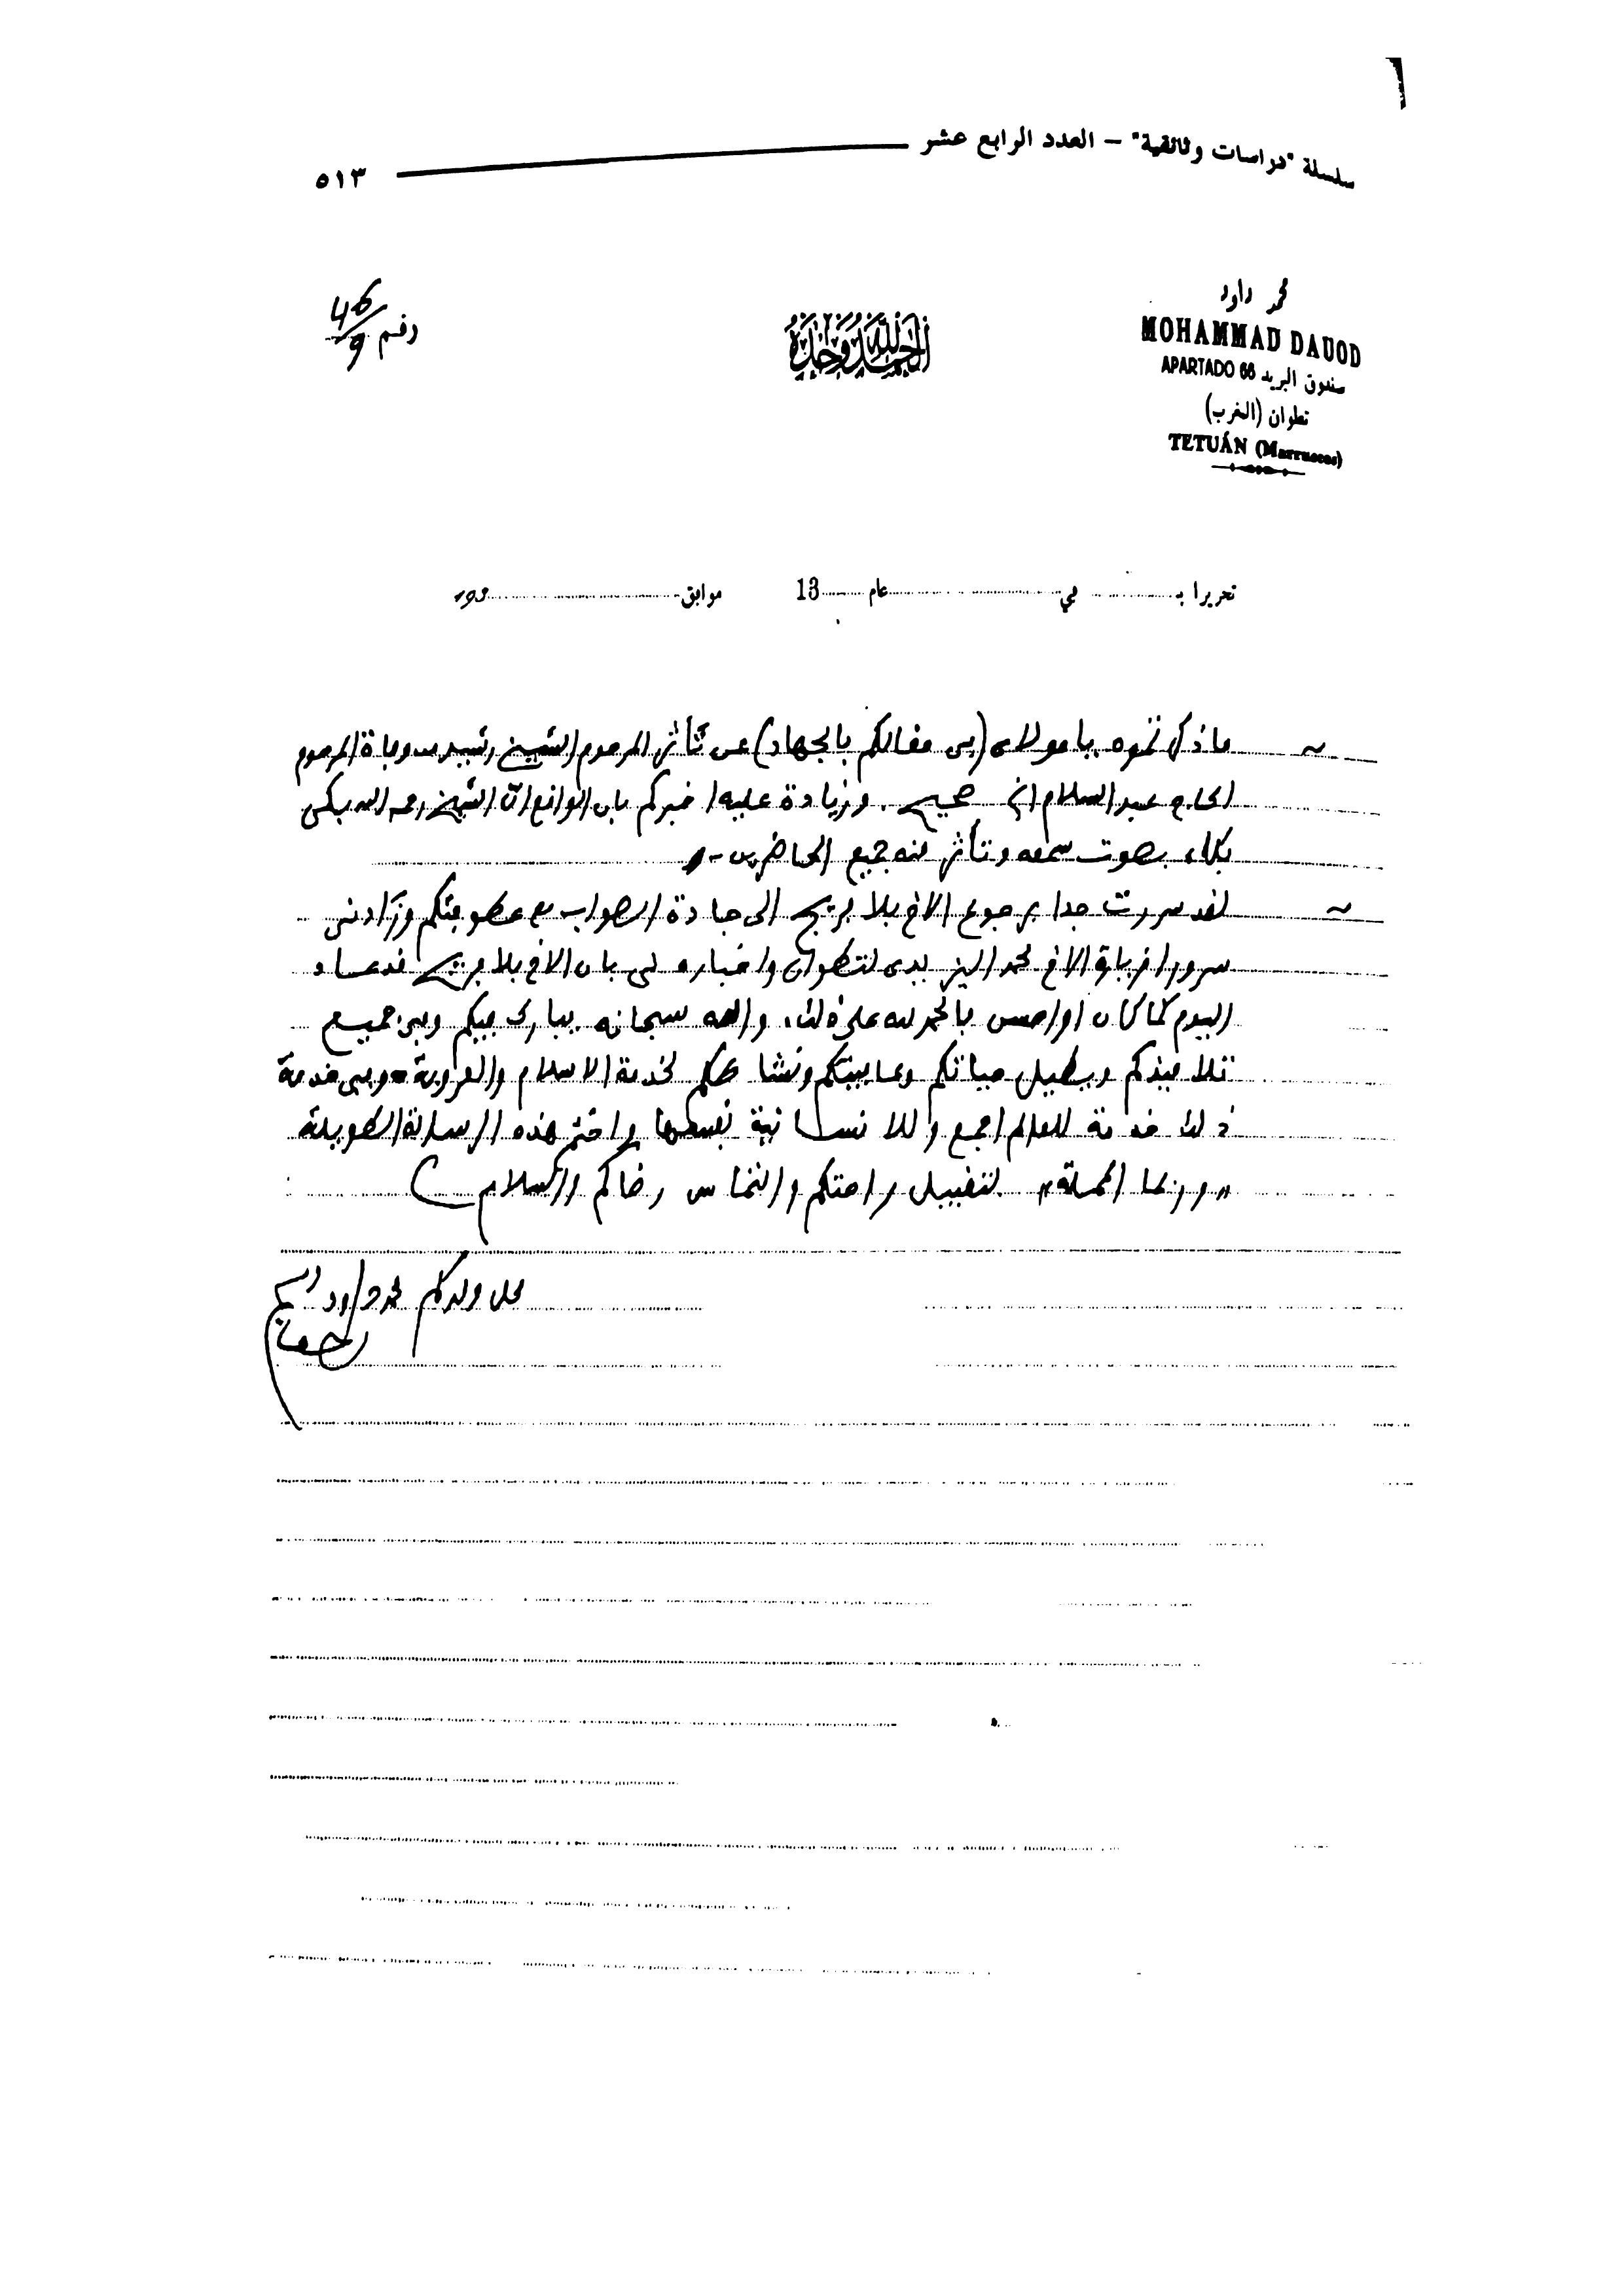 سلسلة "دراسات وثائقية" – العدد الرابع عشر ٥١٣
محمد داود
MOHAMMAD DAUOD
APARTADO 66 صندوق البريد
تطوان (المغرب)
TETUÁN (Marruecos)
الحمد لله وحده
رقم 46/9
تحريرا بـ في عام 13 موافق 193
ما ذكرتموه يا مولاي (في مقالكم بالجهاد) عن تأثر المرحوم الشيخ رشيد من وفاة المرحوم
الحاج عبد السلام صحيح. وزيادة عليه اخبركم بان الواقع ان الشيخ رحمه الله بكى
بكاء بصوت سمعه وتأثر منه جميع الحاضرين -
لقد سررت جدا برجوع الاخ بلافريج الى جادة الصواب مع عطوفتكم وزادني
سرورا زيارة الاخ محمد اليزيدي لتطوان واخباره لي بان الاخ بلافريج قد عاد
اليوم كما كان او احسن فالحمد لله على ذلك، والله سبحانه يبارك فيكم وفي جميع
تلاميذكم ويطيل حياتكم وعافيتكم ونشاطكم لخدمة الاسلام والعروبة وفي خدمة
ذلك خدمة للعالم اجمع وللانسانية نفسها واختم هذه الرسالة الطويلة
"وربما المملة" بتقبيل راحتكم والتماس رضاكم والسلام
محل ولدكم محمد داود